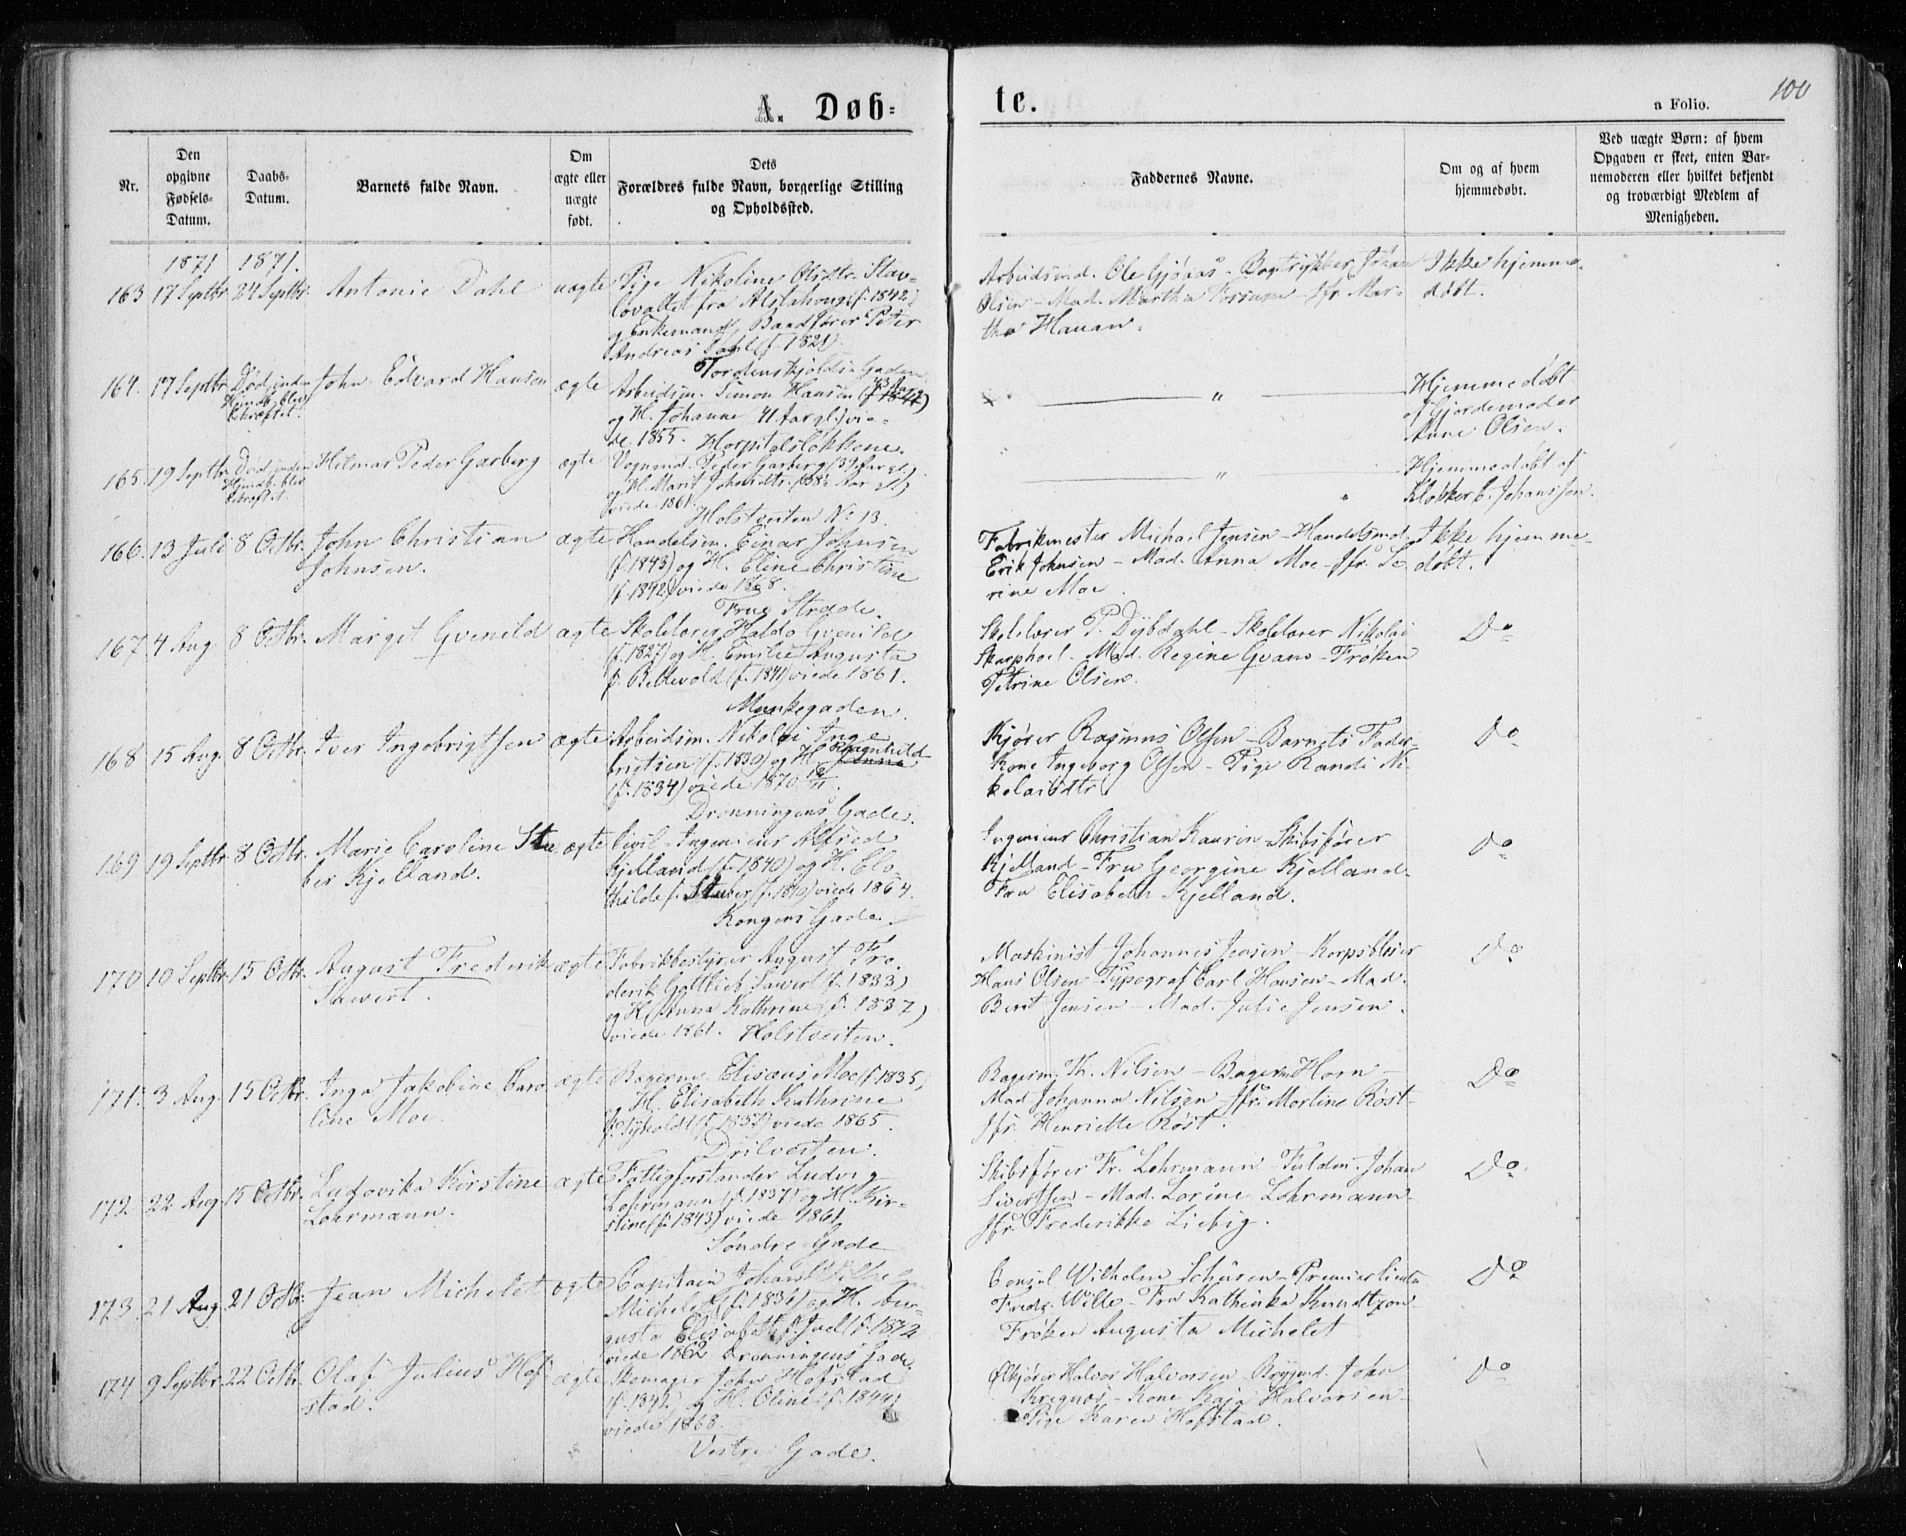 A. Døb-
te.
a Folio.
100
Nr.
Den opgivne Fødsels-Datum.
Daabs-Datum.
Barnets fulde Navn.
Om ægte eller uægte født.
Dets Forældres fulde Navn, borgerlige Stilling og Opholdssted.
Faddernes Navne.
Om og af hvem hjemmedøbt.
Ved uægte Børn: af hvem Opgaven er skeet, enten Barnemoderen eller hvilket bekjendt og troværdigt Medlem af Menigheden.
1871 1871.
163 17 Septbr 24 Septbr. Antonie Dahl uægte Pige Nikoline Olsdtr.
fra Alstahoug (f. 1842)
og Enkemand, Baadfører Peter
Andreas Dahl (f. 1821).
Tordenskjolds Gaden
Arbeidsmd. Ole Gjøsås - Bogtrykker Johan
Olsen - Mad. Martha - Jfr. Mar-
tha Hauan.
Ikke hjemme-
døbt.
164. 17 Septbr Død inden
Hjmdb. blev
bekræftet.
John Edvard Hansen ægte Arbeidsm. Simon Hansen
og H. Johanne 41 Aar gl. vie-
de 1855. Hospitalsløkkene.
"
Hjemmedøbt
af Gjordemoder
Anne Olsen.
165. 19 Septbr Død inden
Hjmdb. blev
bekræftet
Hilmar Peder Garberg ægte Vognmd. Peder Garberg (39 Aar gl.)
og H. Marit Johnsdtr. (38 Aar gl.)
viede 1861.
Holstveiten No 13.
"
Hjemmedøbt af
Klokker C. Johanssen.
166. 13 Juli 8 Octbr. John Christian
Johnsen.
ægte Handelsm. Einar Johnsen
(f. 1843) og H. Eline Christine
(f. 1842) viede 1868.
Frue Stræde.
Fabrikmester Michael Jensen - Handelsmd.
Erik Johnsen - Mad. Anna Moe - Jfr. Se-
rine Moe.
Ikke hjemme-
døbt.
167 4 Aug 8 Octbr. Margit Gvenild ægte Skolelærer Haldo Gvenild
(f. 1827) og H. Emilie Augusta
f. Bellevold (f. 1841) viede 1861.
Munkegaden.
Skolelærer P. Dybdahl - Skolelærer Nikolai
Skarphoel. Mad. Regine - Frøken
Petrine Olsen.
Do
168 15 Aug. 8 Octbr. Iver Ingebrigtsen ægte Arbeidsm. Nikolai Inge-
brigtsen (f. 1830) og H. Ragnhild
(f. 1834) viede 1870
Dronningens Gade.
Kjører Rasmus Olsen - Barnets Fader -
Kone Ingeborg Olsen - Pige Randi Ni-
kolaisdtr.
Do
169 19 Septbr. 8 Octbr. Marie Caroline Stu-
ber Kjelland.
ægte Civil-Ingenieur Alfred
Kjelland (f. 1840) og H. Clo-
thilde f. Stuber (f. 1840) viede 1864.
Kongens Gade.
Ingenieur Christian Kaurin - Skibsfører
Kjelland - Fru Georgine Kjelland -
Fru Elisabeth Kjelland.
Do
170 10 Septbr. 15 Octbr. August Frederik
Sawert.
ægte Fabrikbestyrer August Fre-
derik Gottlieb Sawert (f. 1833)
og H. Anna Kathrine (f. 1837)
viede 1861. Holstveiten.
Maskinist Johannes Jensen - Korpsblæser
Hans Olsen - Typograf Carl Hansen - Mad.
Berit Jensen - Mad. Julie Jensen.
Do
171. 3 Aug 15 Octbr. Inga Jakobine Caro-
line Moe.
ægte Bagerm. Elisæus Moe (f. 1835)
og H. Elisabeth Kathrine
viede 1865.
Drilveiten.
Bagerm. Th. Nilsen - Bagerm. Horn -
Mad. Johanna Nilsen - Jfr. Martine Røst -
Jfr. Henriette Røst.
Do
172. 22 Aug 15 Octbr. Ludovika Kirstine
Lohrmann.
ægte Fattigforstander Ludvig
Lohrmann (f. 1837) og H. Kir-
stine (f. 1843) viede 1861
Søndre Gade
Skibsfører Fr. Lohrmann - Fuldm. Johan
Sivertsen - Mad. Lorine Lohrmann -
Jfr. Frederikke Liebig.
Do
173. 21 Aug 21 Octbr. Jean Michelet ægte Capitain Johan Vilhelm
Michelet (f. 1836) og H. Au-
gusta Elisabeth f. Juell
viede 1862 Dronningens Gade.
Consul Wilhelm Schüsen - Premierlieutn.
Fredr. Wille - Fru Kathinka Knudtzon -
Frøken Augusta Michelet
Do
174 9 Septbr. 22 Octbr. Olaf Julius Hof-
stad.
ægte Skomager John Hofstad
(f. 1842) og H. Oline (f. 1844)
viede 1868.
Vestre Gade.
Ølkjører Halvor Halvorsen - Bryggmd. John
- Kone Kaja Halvorsen
Pige Karen Hofstad.
Do